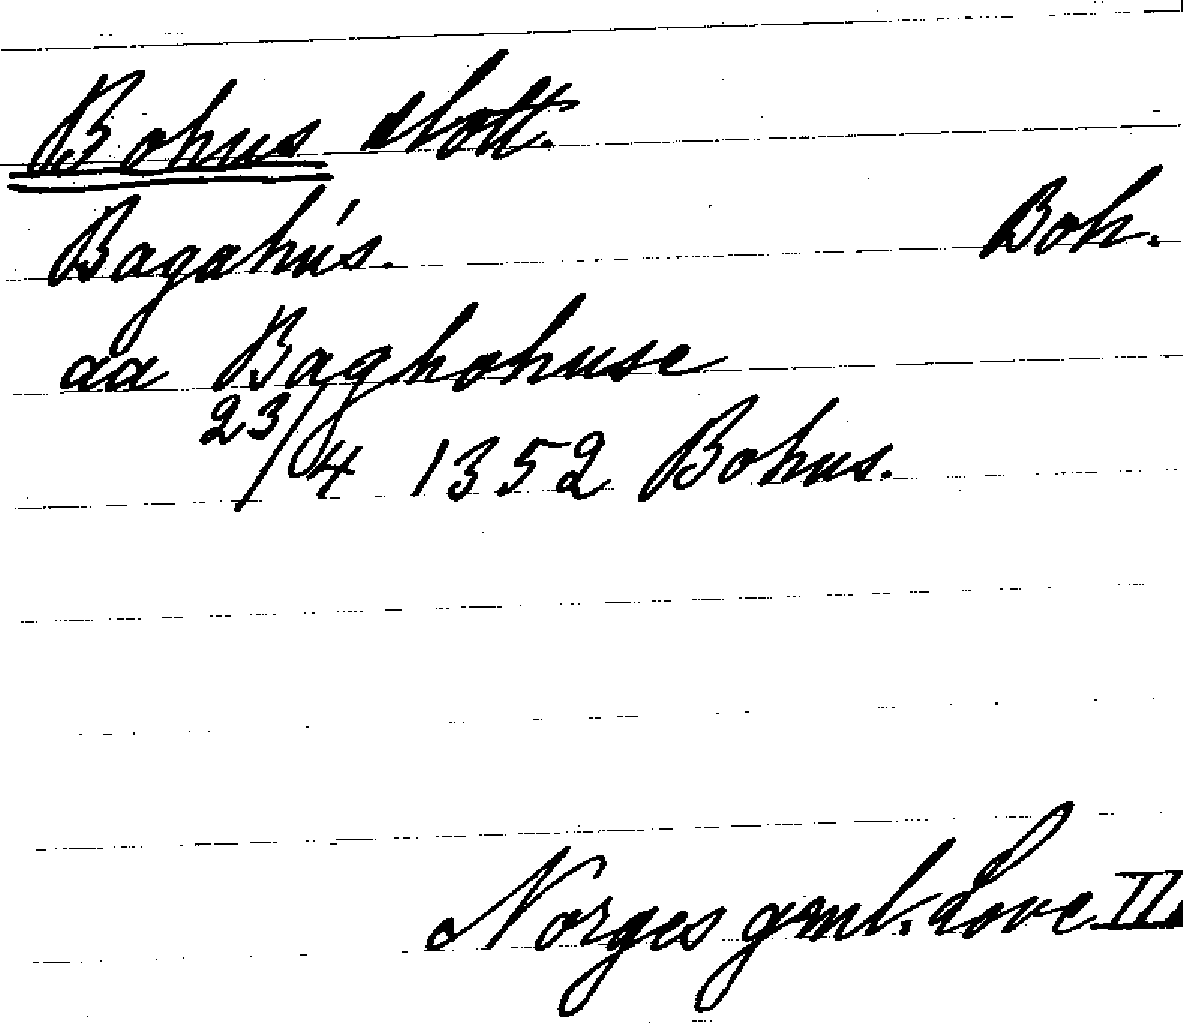 Bohus slott.
Bagahús. Boh.
aa Baghohuse
23/4 1352 Bohus.
Norges gml. Love II.